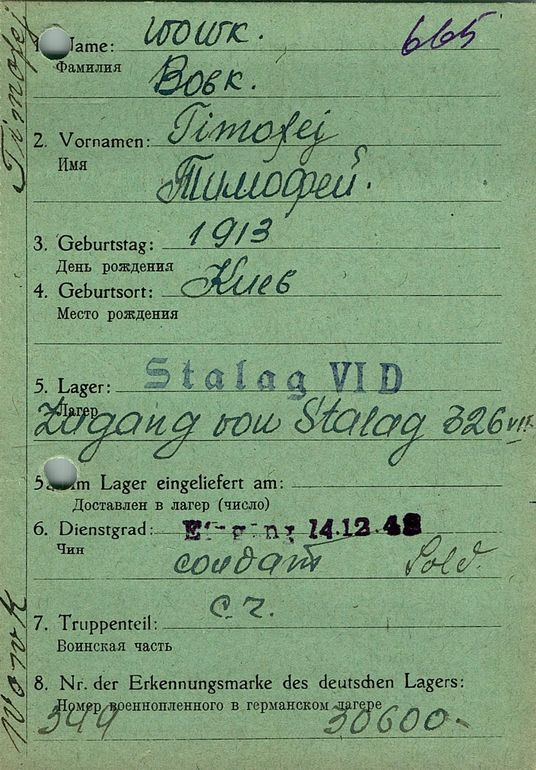 Timofej
1. Name: Wowk.
665
Фамилия
Вовк.
2. Vornamen: Timofej
Имя
Тимофей.
3. Geburtstag: 1913
День рождения
4. Geburtsort: Киев
Место рождения
5. Lager: Stalag VI D
Лагер
Zugang von Stalag 326
5a. Im Lager eingeliefert am:
Доставлен в лагер (число)
6. Dienstgrad: Eingang 14.12.42
Чин
солдат Sold.
7. Truppenteil:
Воинская часть
8. Nr. der Erkennungsmarke des deutschen Lagers:
Номер военнопленного в германском лагере
30600-
Wowk